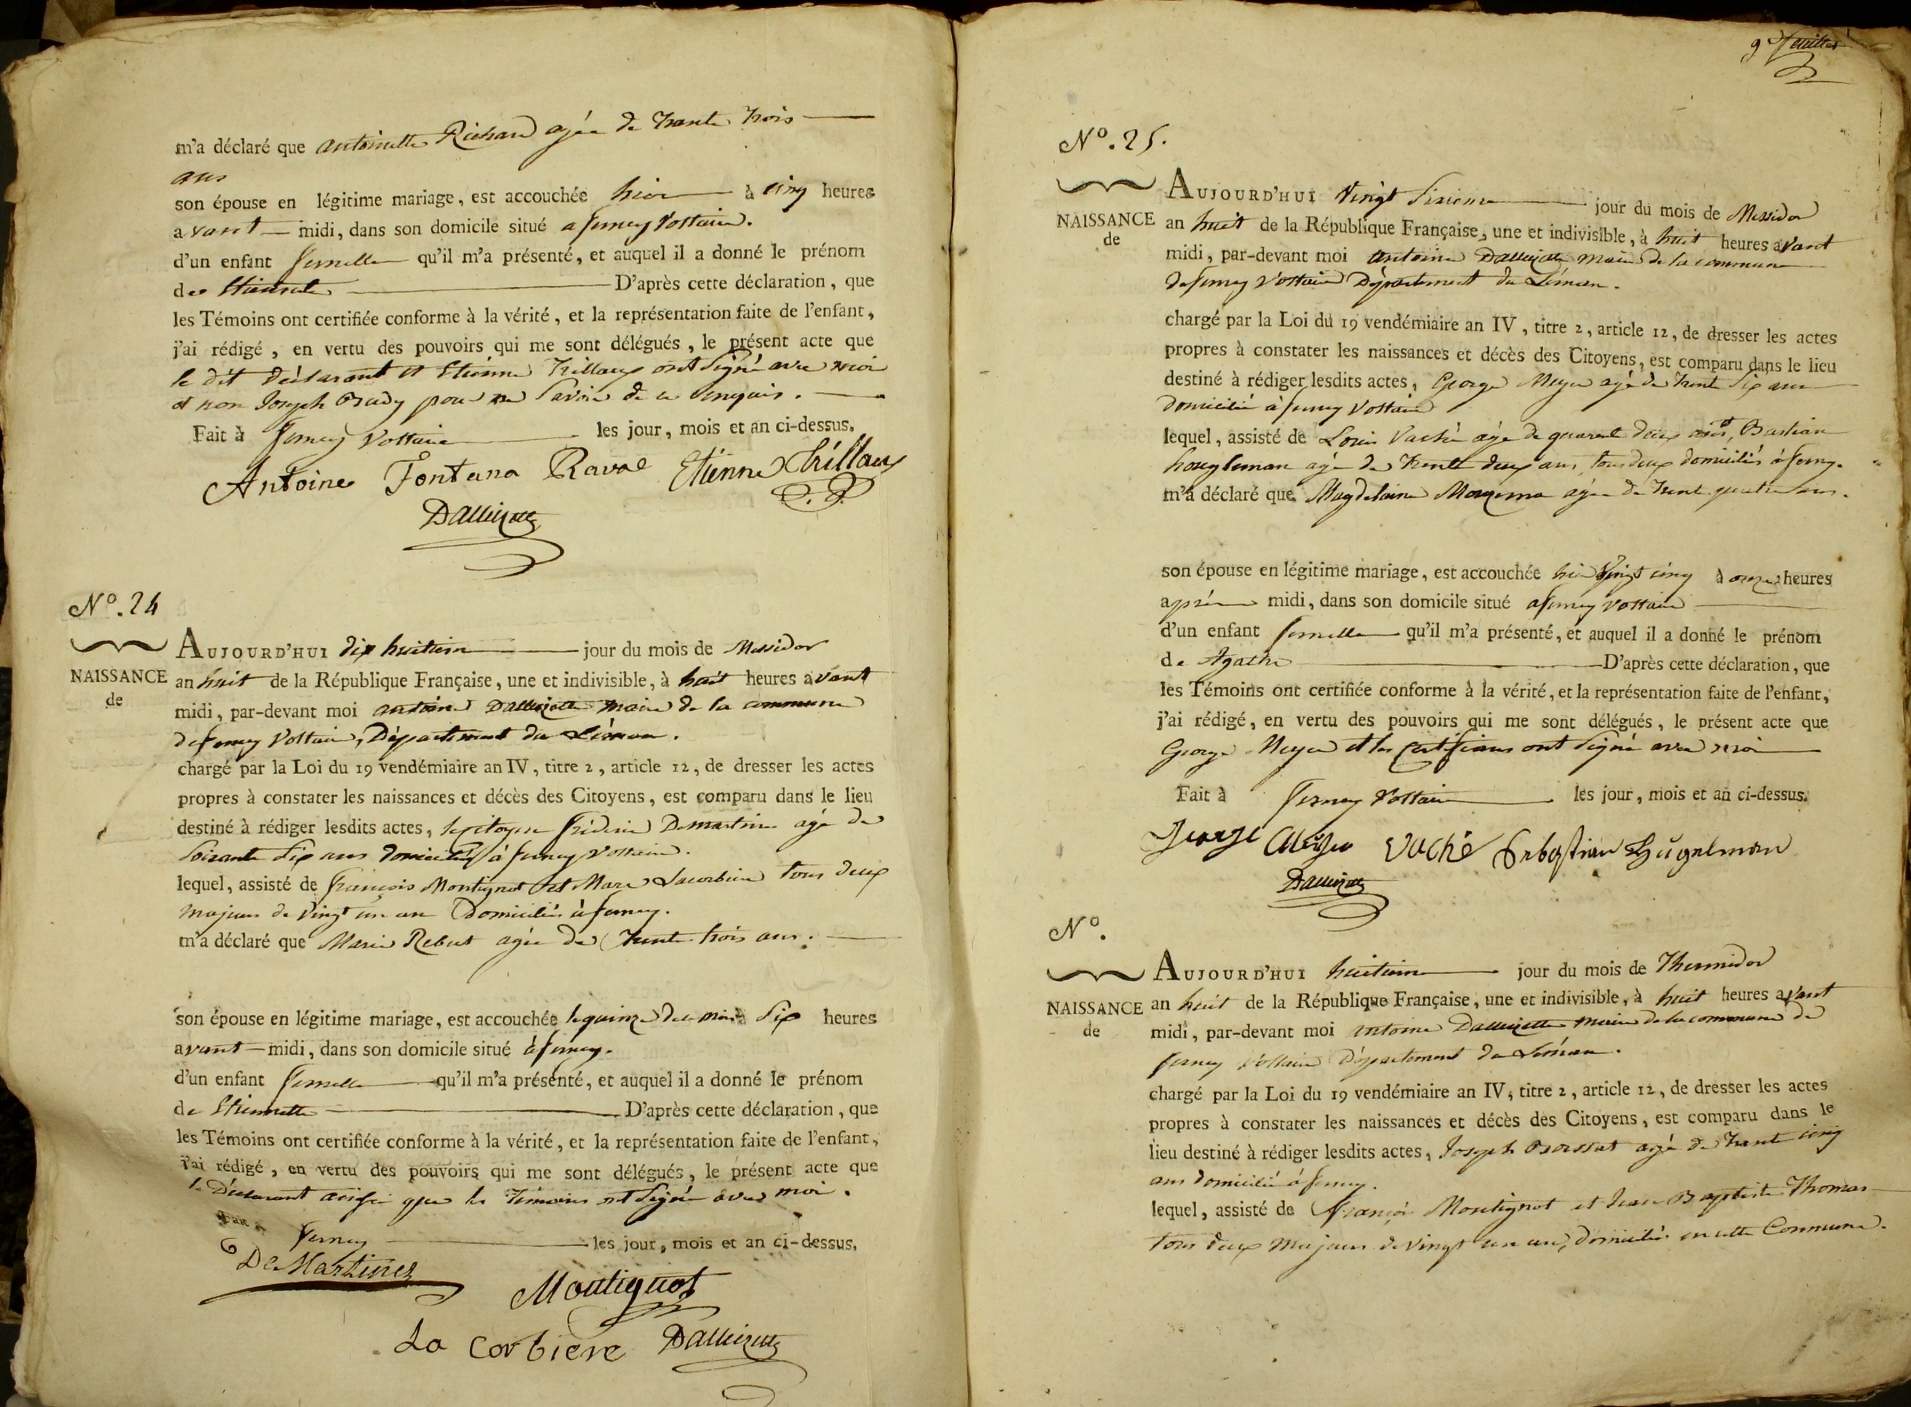 m'a déclaré que antoinette Richard agée de trente trois
ans
son épouse en légitime mariage, est accouchée hier à cinq heures
avant midi, dans son domicile situé a ferney Voltaire.
d'un enfant femelle qu'il m'a présenté, et auquel il a donné le prénom
de D'après cette déclaration, que
les Témoins ont certifiée conforme à la vérité, et la représentation faite de l'enfant,
j'ai rédigé, en vertu des pouvoirs qui me sont délégués, le présent acte que
le dit déclarant et Etienne Trillaux ont Signé avec moi
et non Joseph pour ne Savoir de ce enquis.
Fait à ferney Voltaire les jour, mois et an ci-dessus.
Antoine Fontana Raval Etienne Trillaux
Dallizette
N°. 24
NAISSANCE
de
AUJOURD'HUI dix huitieme jour du mois de Messidor
an huit de la République Française, une et indivisible, à huit heures avant
midi, par-devant moi antoine Dallizette maire de la commune
de ferney Voltaire, Département du Léman.
chargé par la Loi du 19 vendémiaire an IV, titre 2, article 12, de dresser les actes
propres à constater les naissances et décès des Citoyens, est comparu dans le lieu
destiné à rédiger lesdits actes, le citoyen fréderic Demartines agé de
Soixante Six ans domicilié à ferney Voltaire.
lequel, assisté de françois Montignot et Marc Lacorbiere tous deux
majeurs de Vingt un an Domiciliés à ferney.
m'a déclaré que Marie Rebut agée de trente trois ans.
son épouse en légitime mariage, est accouchée le quinze de ce mois à Six heures
avant midi, dans son domicile situé à ferney.
d'un enfant femelle qu'il m'a présenté, et auquel il a donné le prénom
de Etiennette D'après cette déclaration, que
les Témoins ont certifiée conforme à la vérité, et la représentation faite de l'enfant,
j'ai rédigé, en vertu des pouvoirs qui me sont délégués, le présent acte que
le Déclarant ainsi que les témoins ont Signé avec moi.
Fait à ferney les jour, mois et an ci-dessus.
De Martines
Montignot
La Corbiere Dallizette
9e feuillet
N°. 25.
NAISSANCE
de
AUJOURD'HUI Vingt Sixieme jour du mois de Messidor
an huit de la République Française, une et indivisible, à huit heures avant
midi, par-devant moi antoine Dallizette maire de la commune
de ferney Voltaire Département du Léman.
chargé par la Loi du 19 vendémiaire an IV, titre 2, article 12, de dresser les actes
propres à constater les naissances et décès des Citoyens, est comparu dans le lieu
destiné à rédiger lesdits actes, George Meyer agé de trente Six ans
domicilié à ferney Voltaire
lequel, assisté de Louis Vaché agé de quarante deux ans, Bastian
hougleman agé de trente deux ans, tous deux domiciliés à ferney.
m'a déclaré que Magdelaine agée de trente quatre ans.
son épouse en légitime mariage, est accouchée hier Vingt cinq à onze heures
après midi, dans son domicile situé a ferney Voltaire
d'un enfant femelle qu'il m'a présenté, et auquel il a donné le prénom
de Agathe D'après cette déclaration, que
les Témoins ont certifiée conforme à la vérité, et la représentation faite de l'enfant,
j'ai rédigé, en vertu des pouvoirs qui me sont délégués, le présent acte que
George Meyer et les ont Signé avec moi
Fait à ferney Voltaire les jour, mois et an ci-dessus.
George Meyer Vaché Sebastian Hügelman
Dallizette
N°.
NAISSANCE
de
AUJOURD'HUI huitieme jour du mois de Thermidor
an huit de la République Française, une et indivisible, à huit heures avant
midi, par-devant moi antoine Dallizette maire de la commune de
ferney Voltaire Département du Léman.
chargé par la Loi du 19 vendémiaire an IV, titre 2, article 12, de dresser les actes
propres à constater les naissances et décès des Citoyens, est comparu dans le
lieu destiné à rédiger lesdits actes, Joseph agé de trente cinq
ans domicilié à ferney.
lequel, assisté de françois Montignot et Jean Baptiste Thomas
tous deux majeurs de vingt un ans, domiciliés en cette Commune.